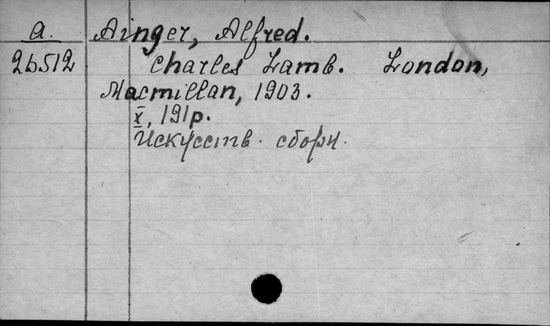 a. Ainger, Alfred.
26512 Charles Lamb. London,
Macmillan, 1903.
X, 191p.
Искусств. сборн.